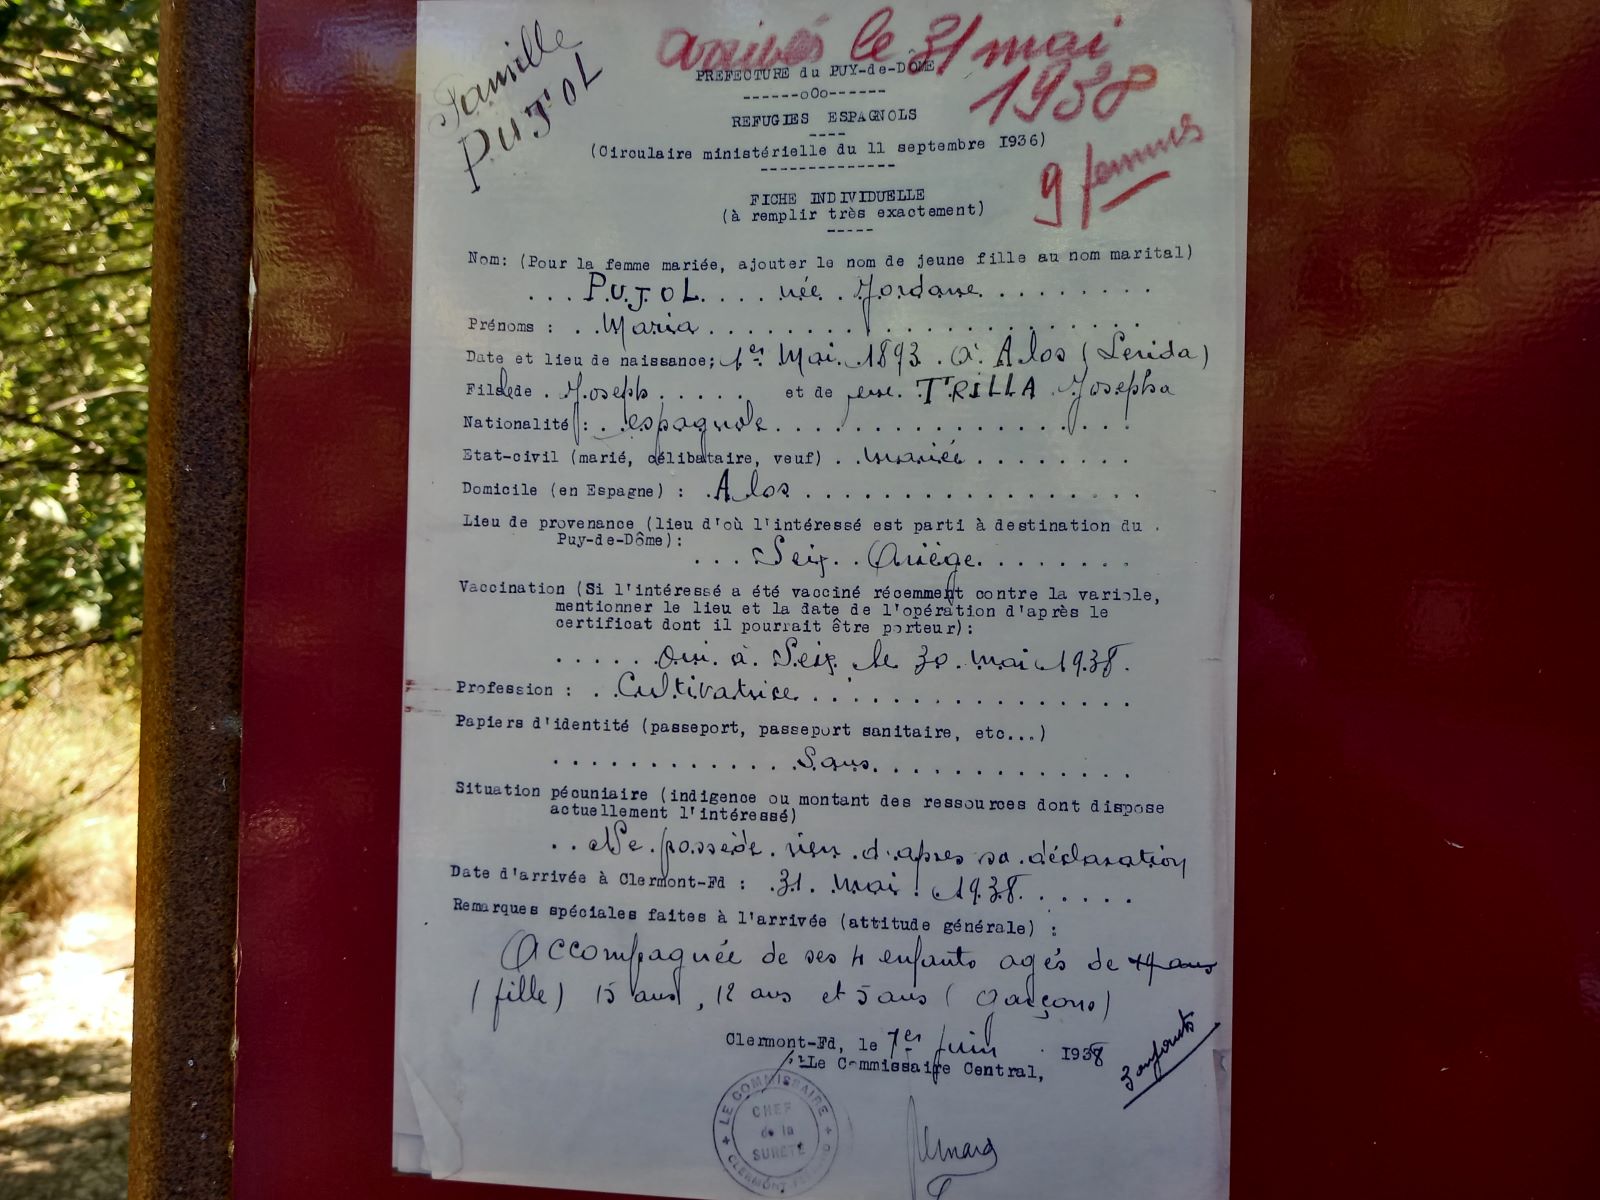 Famille
PUJOL
arrivés le 31 mai
1938
9 femmes
PREFECTURE du PUY-de-DÔME
------oOo------
REFUGIES ESPAGNOLS
----
(Circulaire ministérielle du 11 septembre 1936)
--------------
FICHE INDIVIDUELLE
(à remplir très exactement)
-----
Nom: (Pour la femme mariée, ajouter le nom de jeune fille au nom marital)
... PUJOL .... née . Jordane ........
Prénoms : . . Maria ......................
Date et lieu de naissance; 1er Mai 1893 . à Alos (Lerida)
Fils de de . Joseph ..... et de feue. TRILLA Josepha
Nationalité : . . espagnole ......................
Etat-civil (marié, célibataire, veuf) . . mariée .........
Domicile (en Espagne) : . Alos ....................
Lieu de provenance (lieu d'où l'intéressé est parti à destination du .
Puy-de-Dôme):
... Seix . . Ariège .........
Vaccination (Si l'intéressé a été vacciné récemment contre la variole,
mentionner le lieu et la date de l'opération d'après le
certificat dont il pourrait être porteur):
...... Oui. à Seix, le 30 mai 1938.
Profession : . . Cultivatrice ....................
Papiers d'identité (passeport, passeport sanitaire, etc...)
............. Sans ..............
Situation pécuniaire (indigence ou montant des ressources dont dispose
actuellement l'intéressé)
. . Ne possède rien d'après sa déclaration
Date d'arrivée à Clermont-Fd : . 31 . Mai . 1938 ......
Remarques spéciales faites à l'arrivée (attitude générale) :
Accompagnée de ses 4 enfants agés de
(fille) 15 ans, 12 ans et 5 ans (garçons)
Clermont-Fd, le 1er Juin 1938
Le Commissaire Central,
3 enfants
LE COMMISSAIRE
CHEF
de la
SURETÉ
CLERMONT-FERRAND